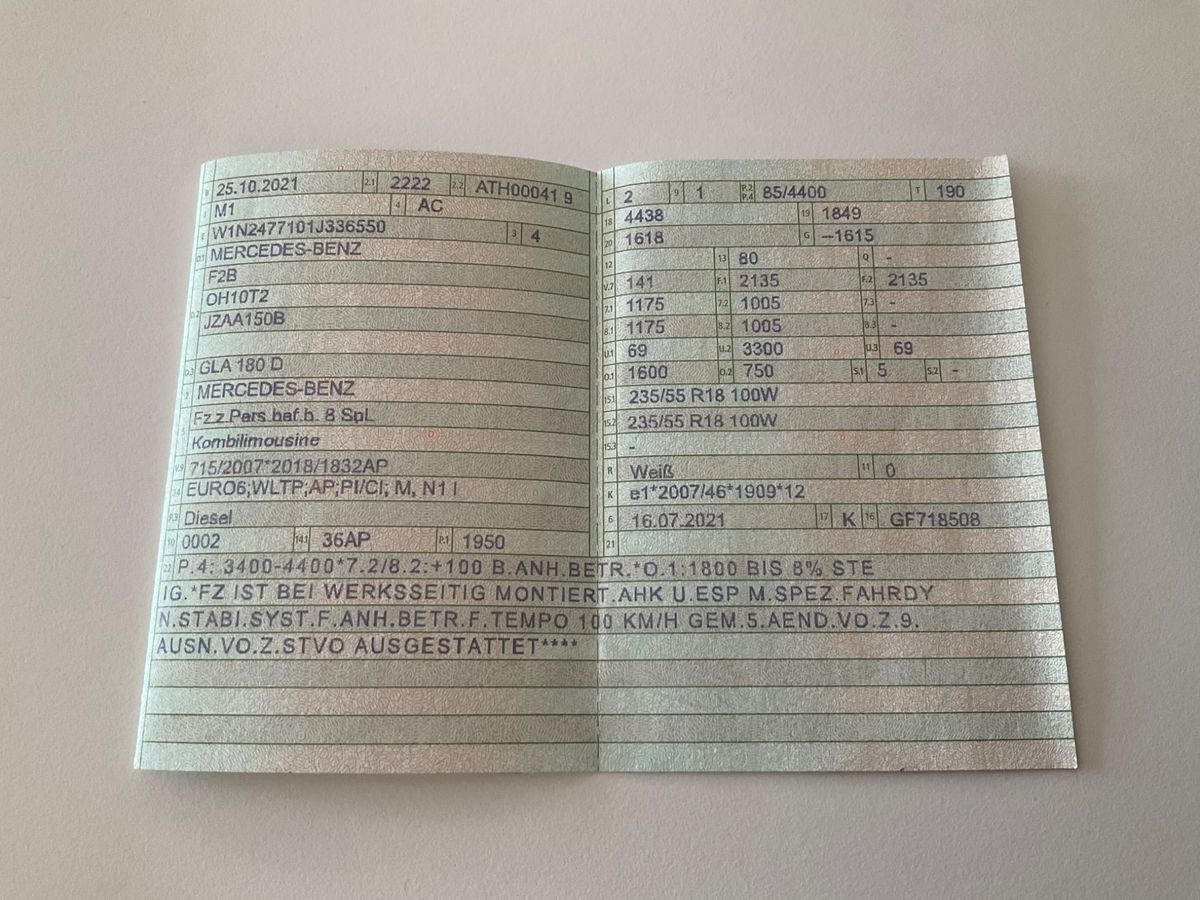 B 25.10.2021 2.1 2222 2.2 ATH00041 9
J M1 4 AC
E W1N2477101J336550 3 4
D.1 MERCEDES-BENZ
F2B
D.2 OH10T2
JZAA150B
D.3 GLA 180 D
2 MERCEDES-BENZ
5 Fz.z.Pers.bef.b. 8 Spl.
Kombilimousine
V.9 715/2007*2018/1832AP
14 EURO6;WLTP;AP;PI/CI; M, N1 I
P.3 Diesel
10 0002 14.1 36AP P.1 1950
L 2 9 1 P.2 P.4 85/4400 T 190
18 4438 19 1849
20 1618 G –1615
12 13 80 Q -
V.7 141 F.1 2135 F.2 2135
7.1 1175 7.2 1005 7.3 -
8.1 1175 8.2 1005 8.3 -
U.1 69 U.2 3300 U.3 69
O.1 1600 O.2 750 S.1 5 S.2 -
15.1 235/55 R18 100W
15.2 235/55 R18 100W
15.3 -
R Weiß 11 0
K e1*2007/46*1909*12
6 16.07.2021 17 K 16 GF718508
21
22 P.4: 3400-4400*7.2/8.2:+100 B.ANH.BETR.*O.1:1800 BIS 8% STE
IG.*FZ IST BEI WERKSSEITIG MONTIERT.AHK U.ESP M.SPEZ.FAHRDY
N.STABI.SYST.F.ANH.BETR.F.TEMPO 100 KM/H GEM.5.AEND.VO.Z.9.
AUSN.VO.Z.STVO AUSGESTATTET****